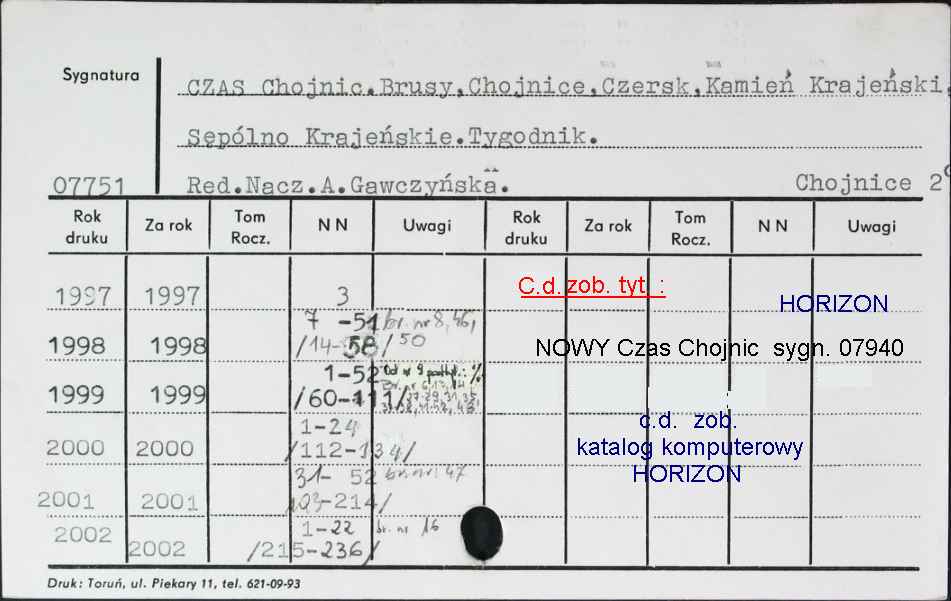 Sygnatura
CZAS Chojnic.Brusy,Chojnice,Czersk,Kamień Krajeński,
Sępólno Krajeńskie.Tygodnik.
07751 Red.Nacz.A.Gawczyńska. Chojnice 2°
Rok druku Za rok Tom Rocz. N N Uwagi Rok druku Za rok Tom Rocz. N N Uwagi
1997 1997 3
C.d. zob. tyt :
HORIZON
7 -51 br. nr 8, 46,
1998 1998 /14-58/ 50
NOWY Czas Chojnic sygn. 07940
1-52 Od nr 9 podtyt.: %
1999 1999 /60-111/
c.d. zob.
1-24
2000 2000 /112-134/
katalog komputerowy
31- 52 br. nr 47
HORIZON
2001 2001 -214/
1-22 br. nr 16
2002 2002 /215-236/
Druk: Toruń, ul. Piekary 11, tel. 621-09-93